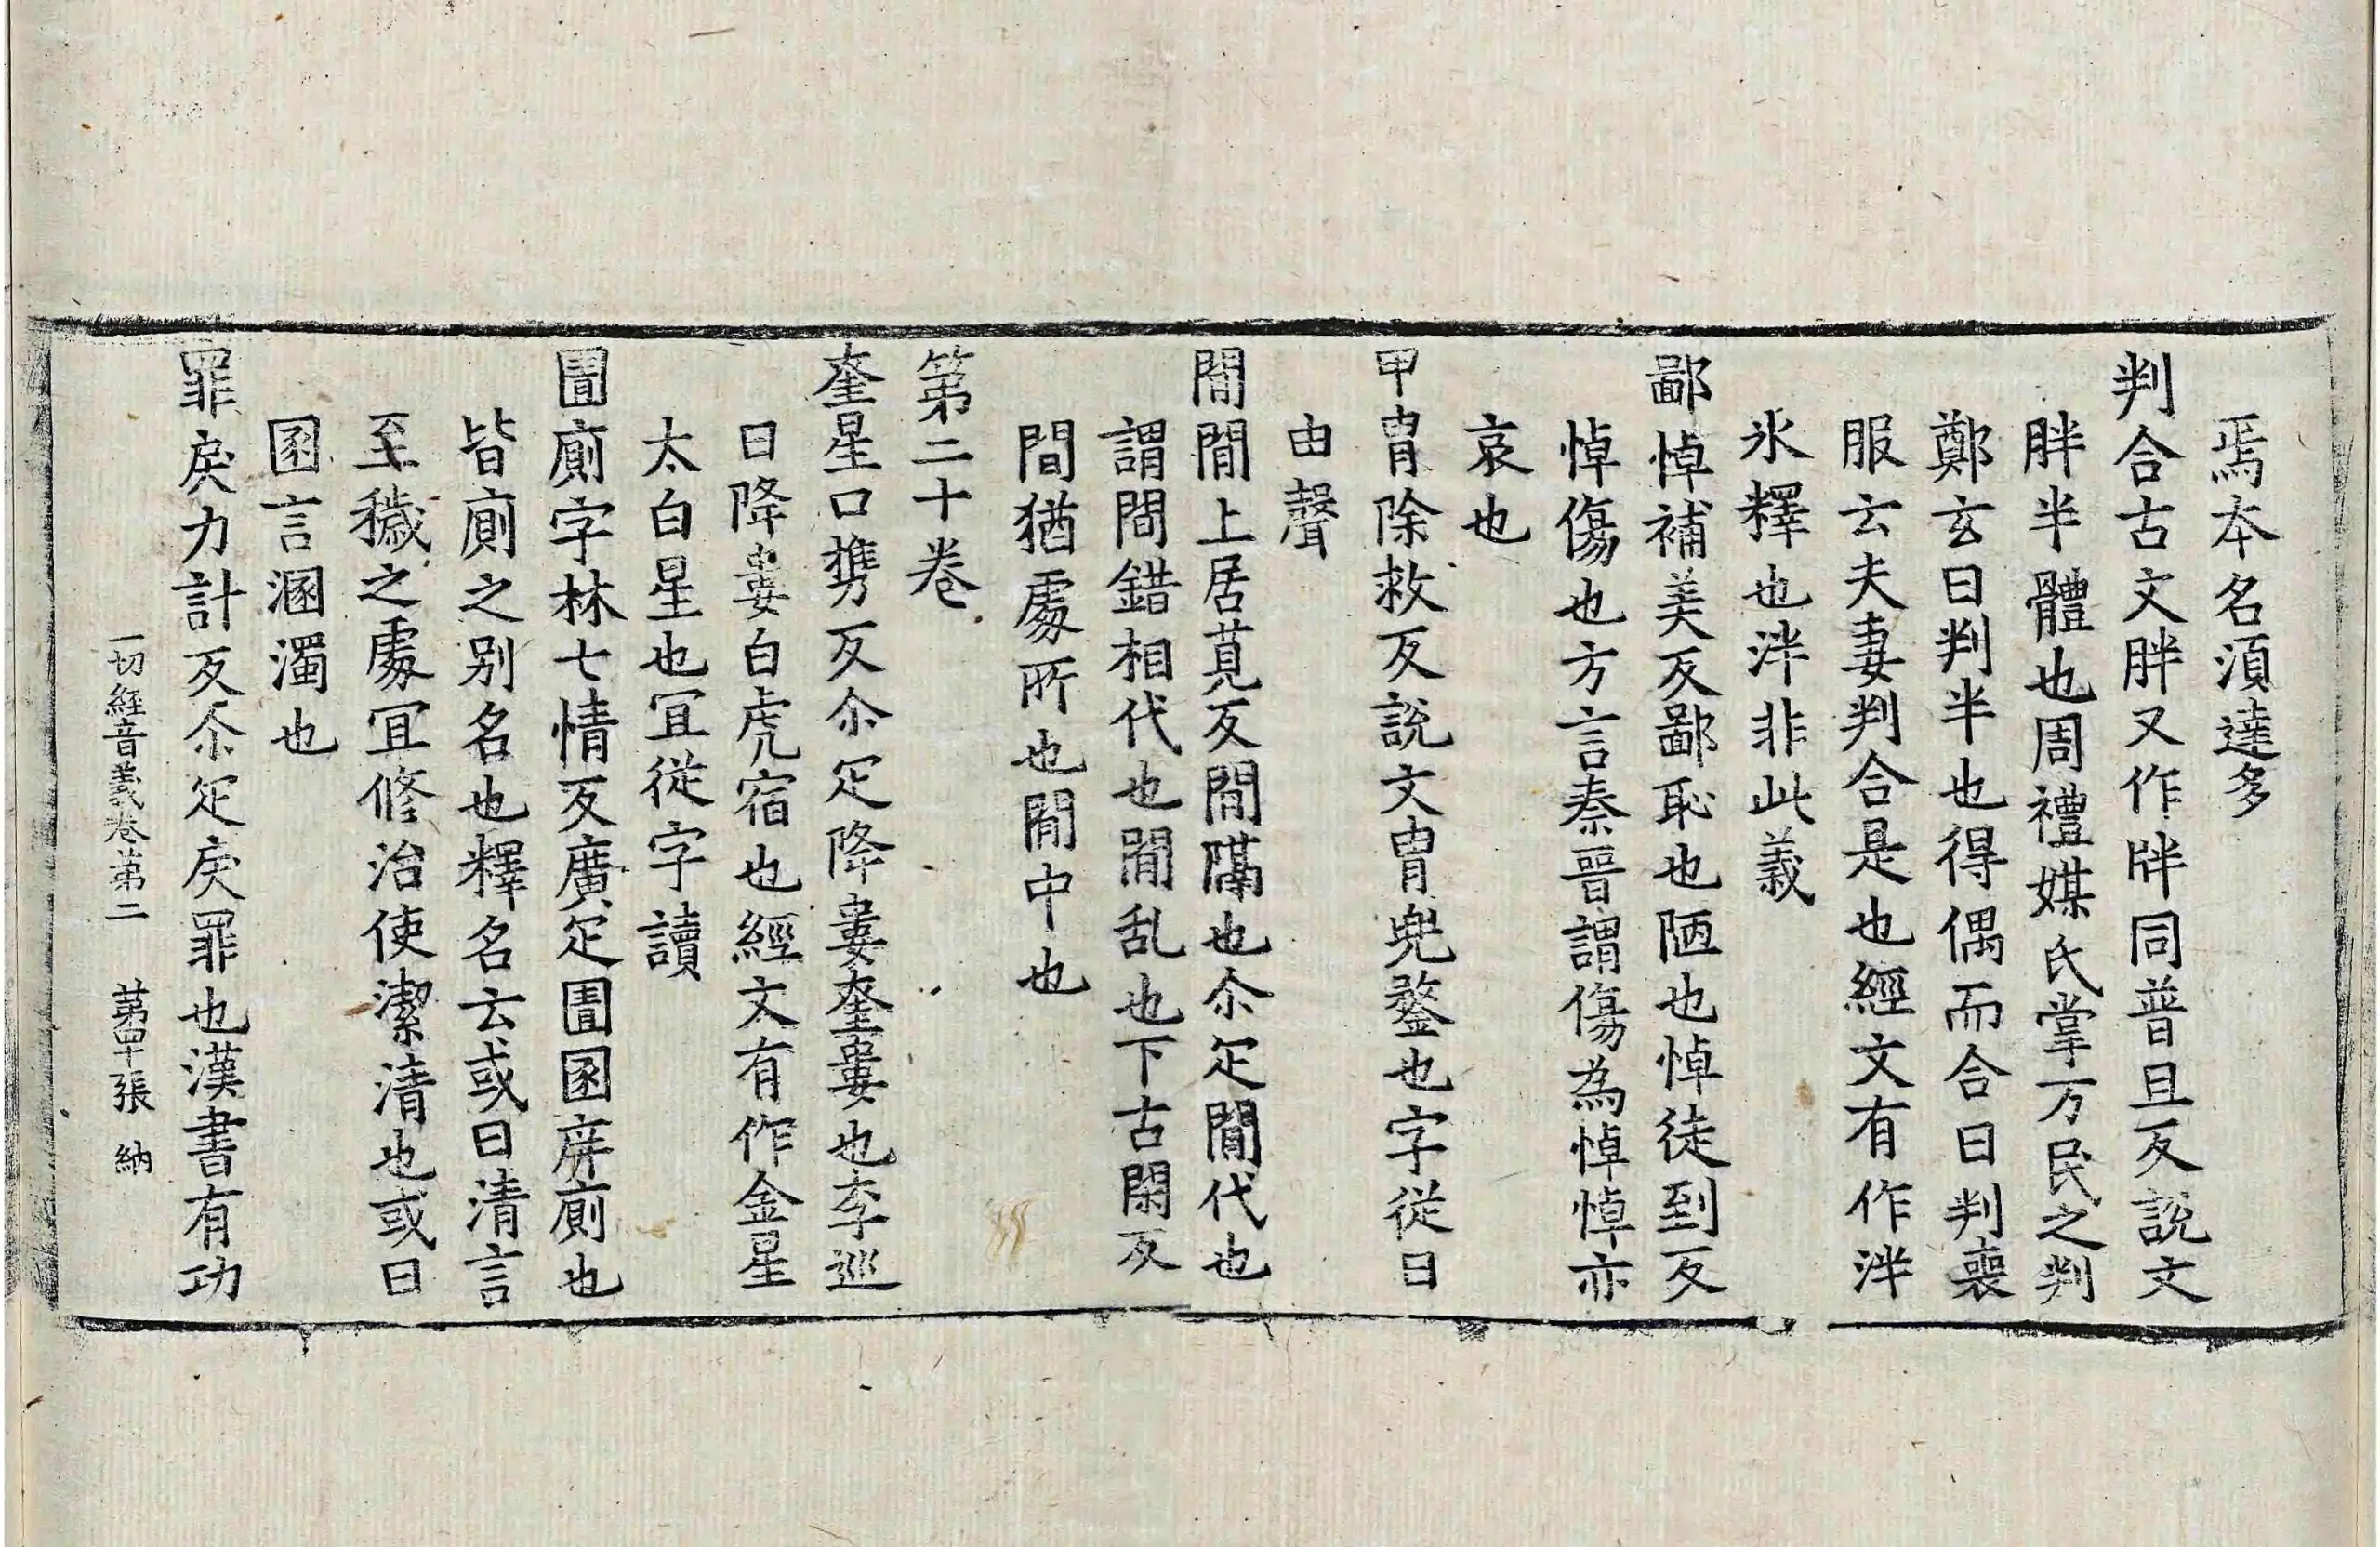 焉本名湏達多
判合古文胖又作牉同普旦反說文
胖半體也周禮媒氏掌万民之判
鄭玄曰判半也得偶而合曰判喪
服云夫妻判合是也經文有作泮
氷釋也泮非此義
鄙悼補美反鄙恥也陋也悼徒到反
悼傷也方言秦晉謂傷為悼悼亦
哀也
甲冑除救反說文冑兜鍪也字從冃
由聲
閒閒上居莧反閒隔也尒疋閒代也
謂閒錯相代也閒乱也下古閑反
閒猶處所也閒中也
第二十卷
奎星口攜反尒疋降婁奎婁也李巡
曰降婁白虎宿也經文有作金星
太白星也冝從字讀
圊廁字林七情反廣疋圊圂庰廁也
皆廁之别名也釋名云或曰清言
至穢之處冝修治使潔清也或曰
圂言溷濁也
罪戾力計反尒疋戾罪也漢書有功
一切經音義卷苐二　苐四十張　納